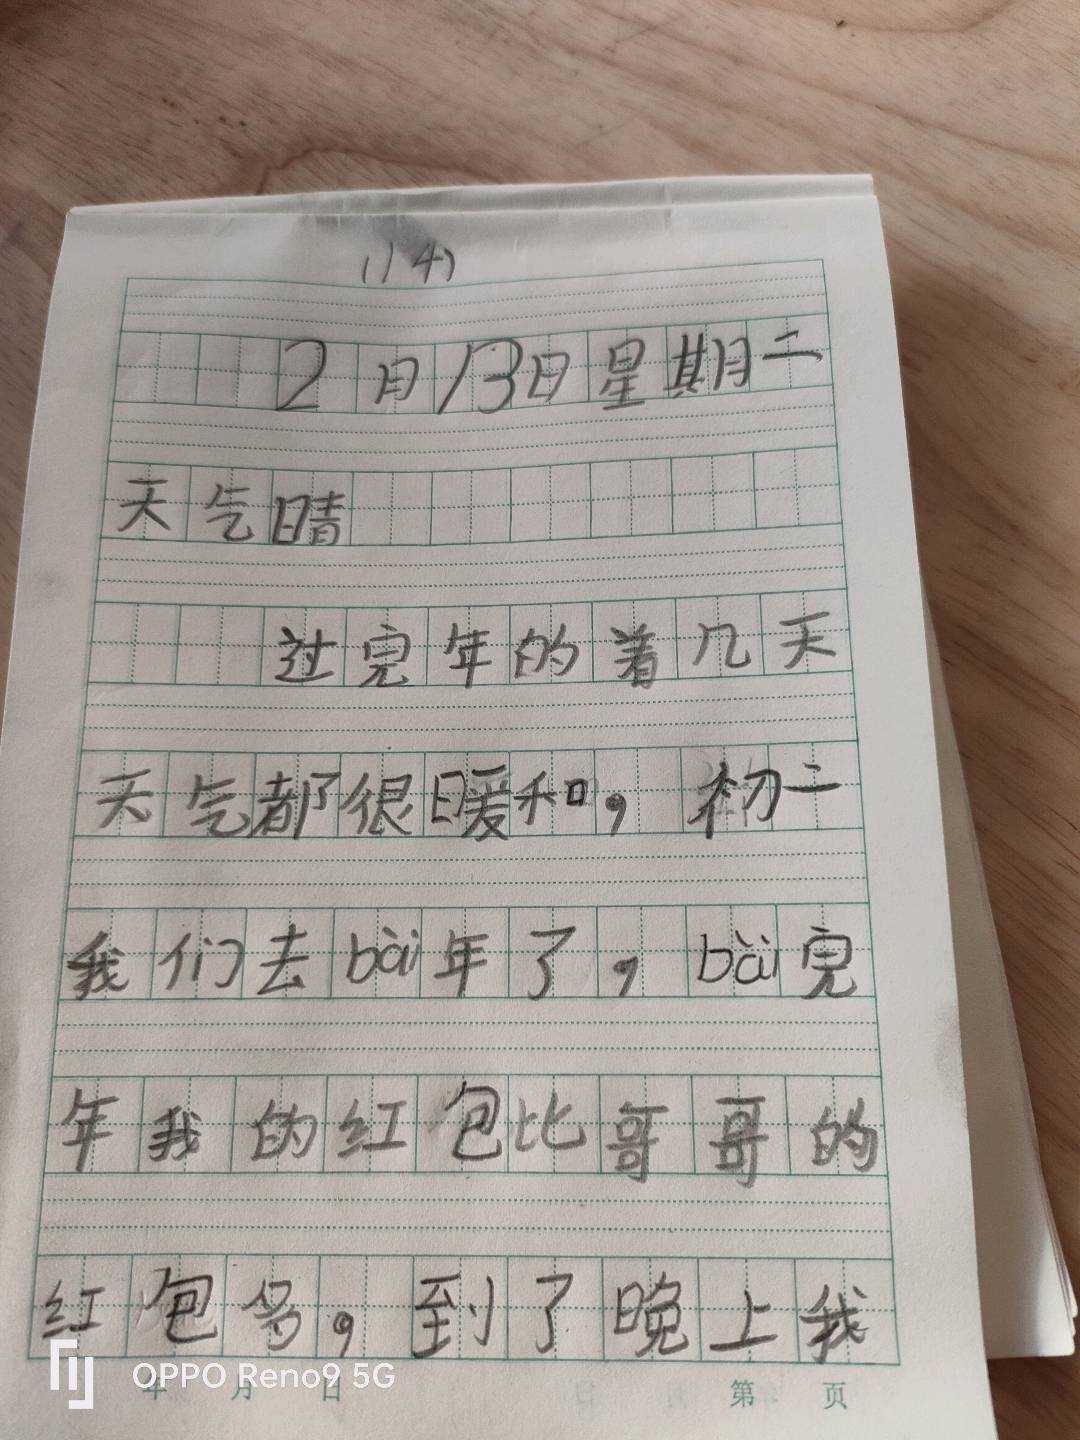 (14)
2月13日星期二
天气晴
过完年的着几天
天气都很暖和，初二
我们去bài年了，bài完
年我的红包比哥哥的
红包多，到了晚上我
年 月 日 第 页
OPPO Reno9 5G